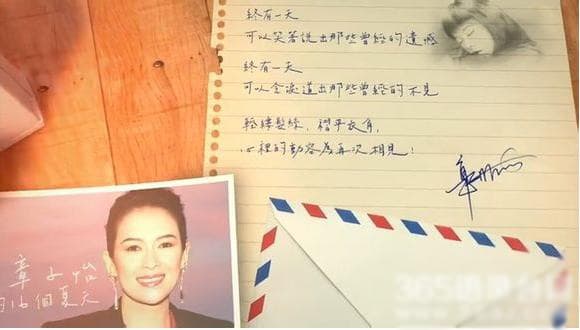 终有一天
可以笑著說出那些曾經的遺憾
终有一天
可以含淚道出那些曾經的不見
輕縷髮絲，褶平衣角，
心裡的動容為再次相見！
章子怡
的16個夏天